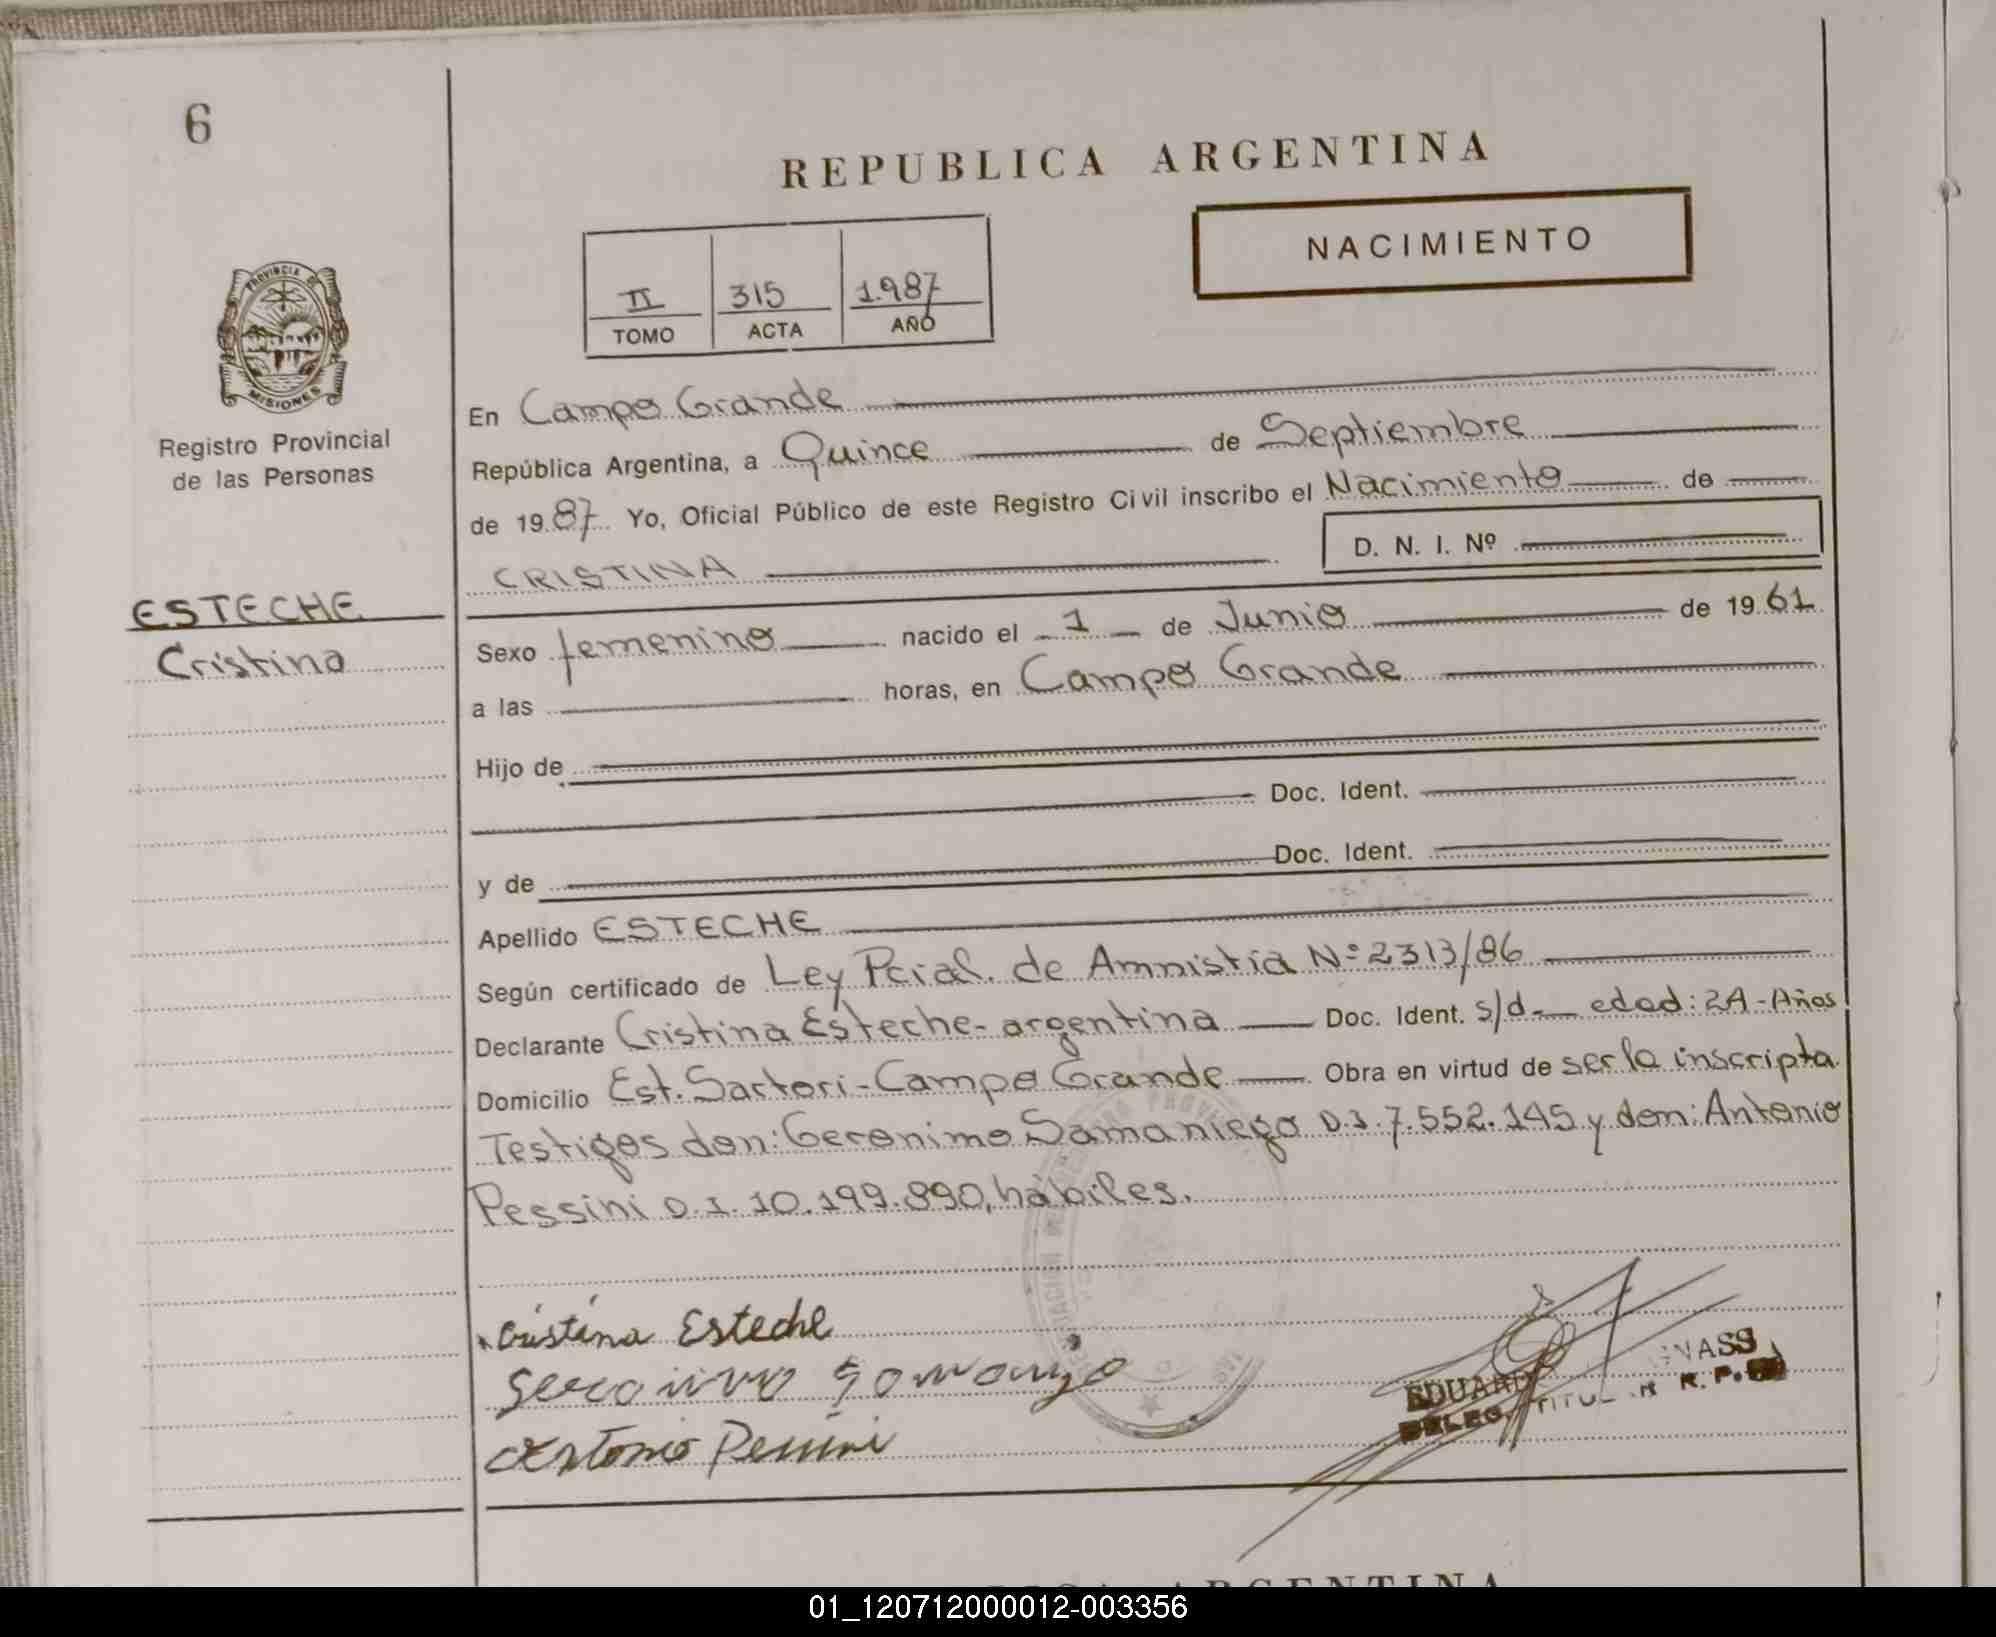 6
REPUBLICA ARGENTINA
NACIMIENTO
II 315 1.987
TOMO ACTA AÑO
PROVINCIA DE
MISIONES
Registro Provincial
de las Personas
ESTECHE
Cristina
En Campo Grande
República Argentina, a Quince de Septiembre
de 1987 Yo, Oficial Público de este Registro Civil inscribo el Nacimiento de
CRISTINA D. N. I. Nº
Sexo femenino nacido el 1 de Junio de 1961
a las horas, en Campo Grande
Hijo de
Doc. Ident.
y de Doc. Ident.
Apellido ESTECHE
Según certificado de Ley Pcial. de Amnistia Nº 2313/86
Declarante Cristina Esteche - argentina Doc. Ident. s/d - edad: 24 - Años
Domicilio Est. Sartori - Campo Grande Obra en virtud de ser la inscripta
Testigos don: Geronimo Samaniego D.I. 7.552.145 y don: Antonio
Pessini D.I. 10.199.890, habiles.
Cristina Esteche
Antonio Pessini
EDUARDO
DELEG. TITULAR R. P.
REPUBLICA ARGENTINA
01_120712000012-003356